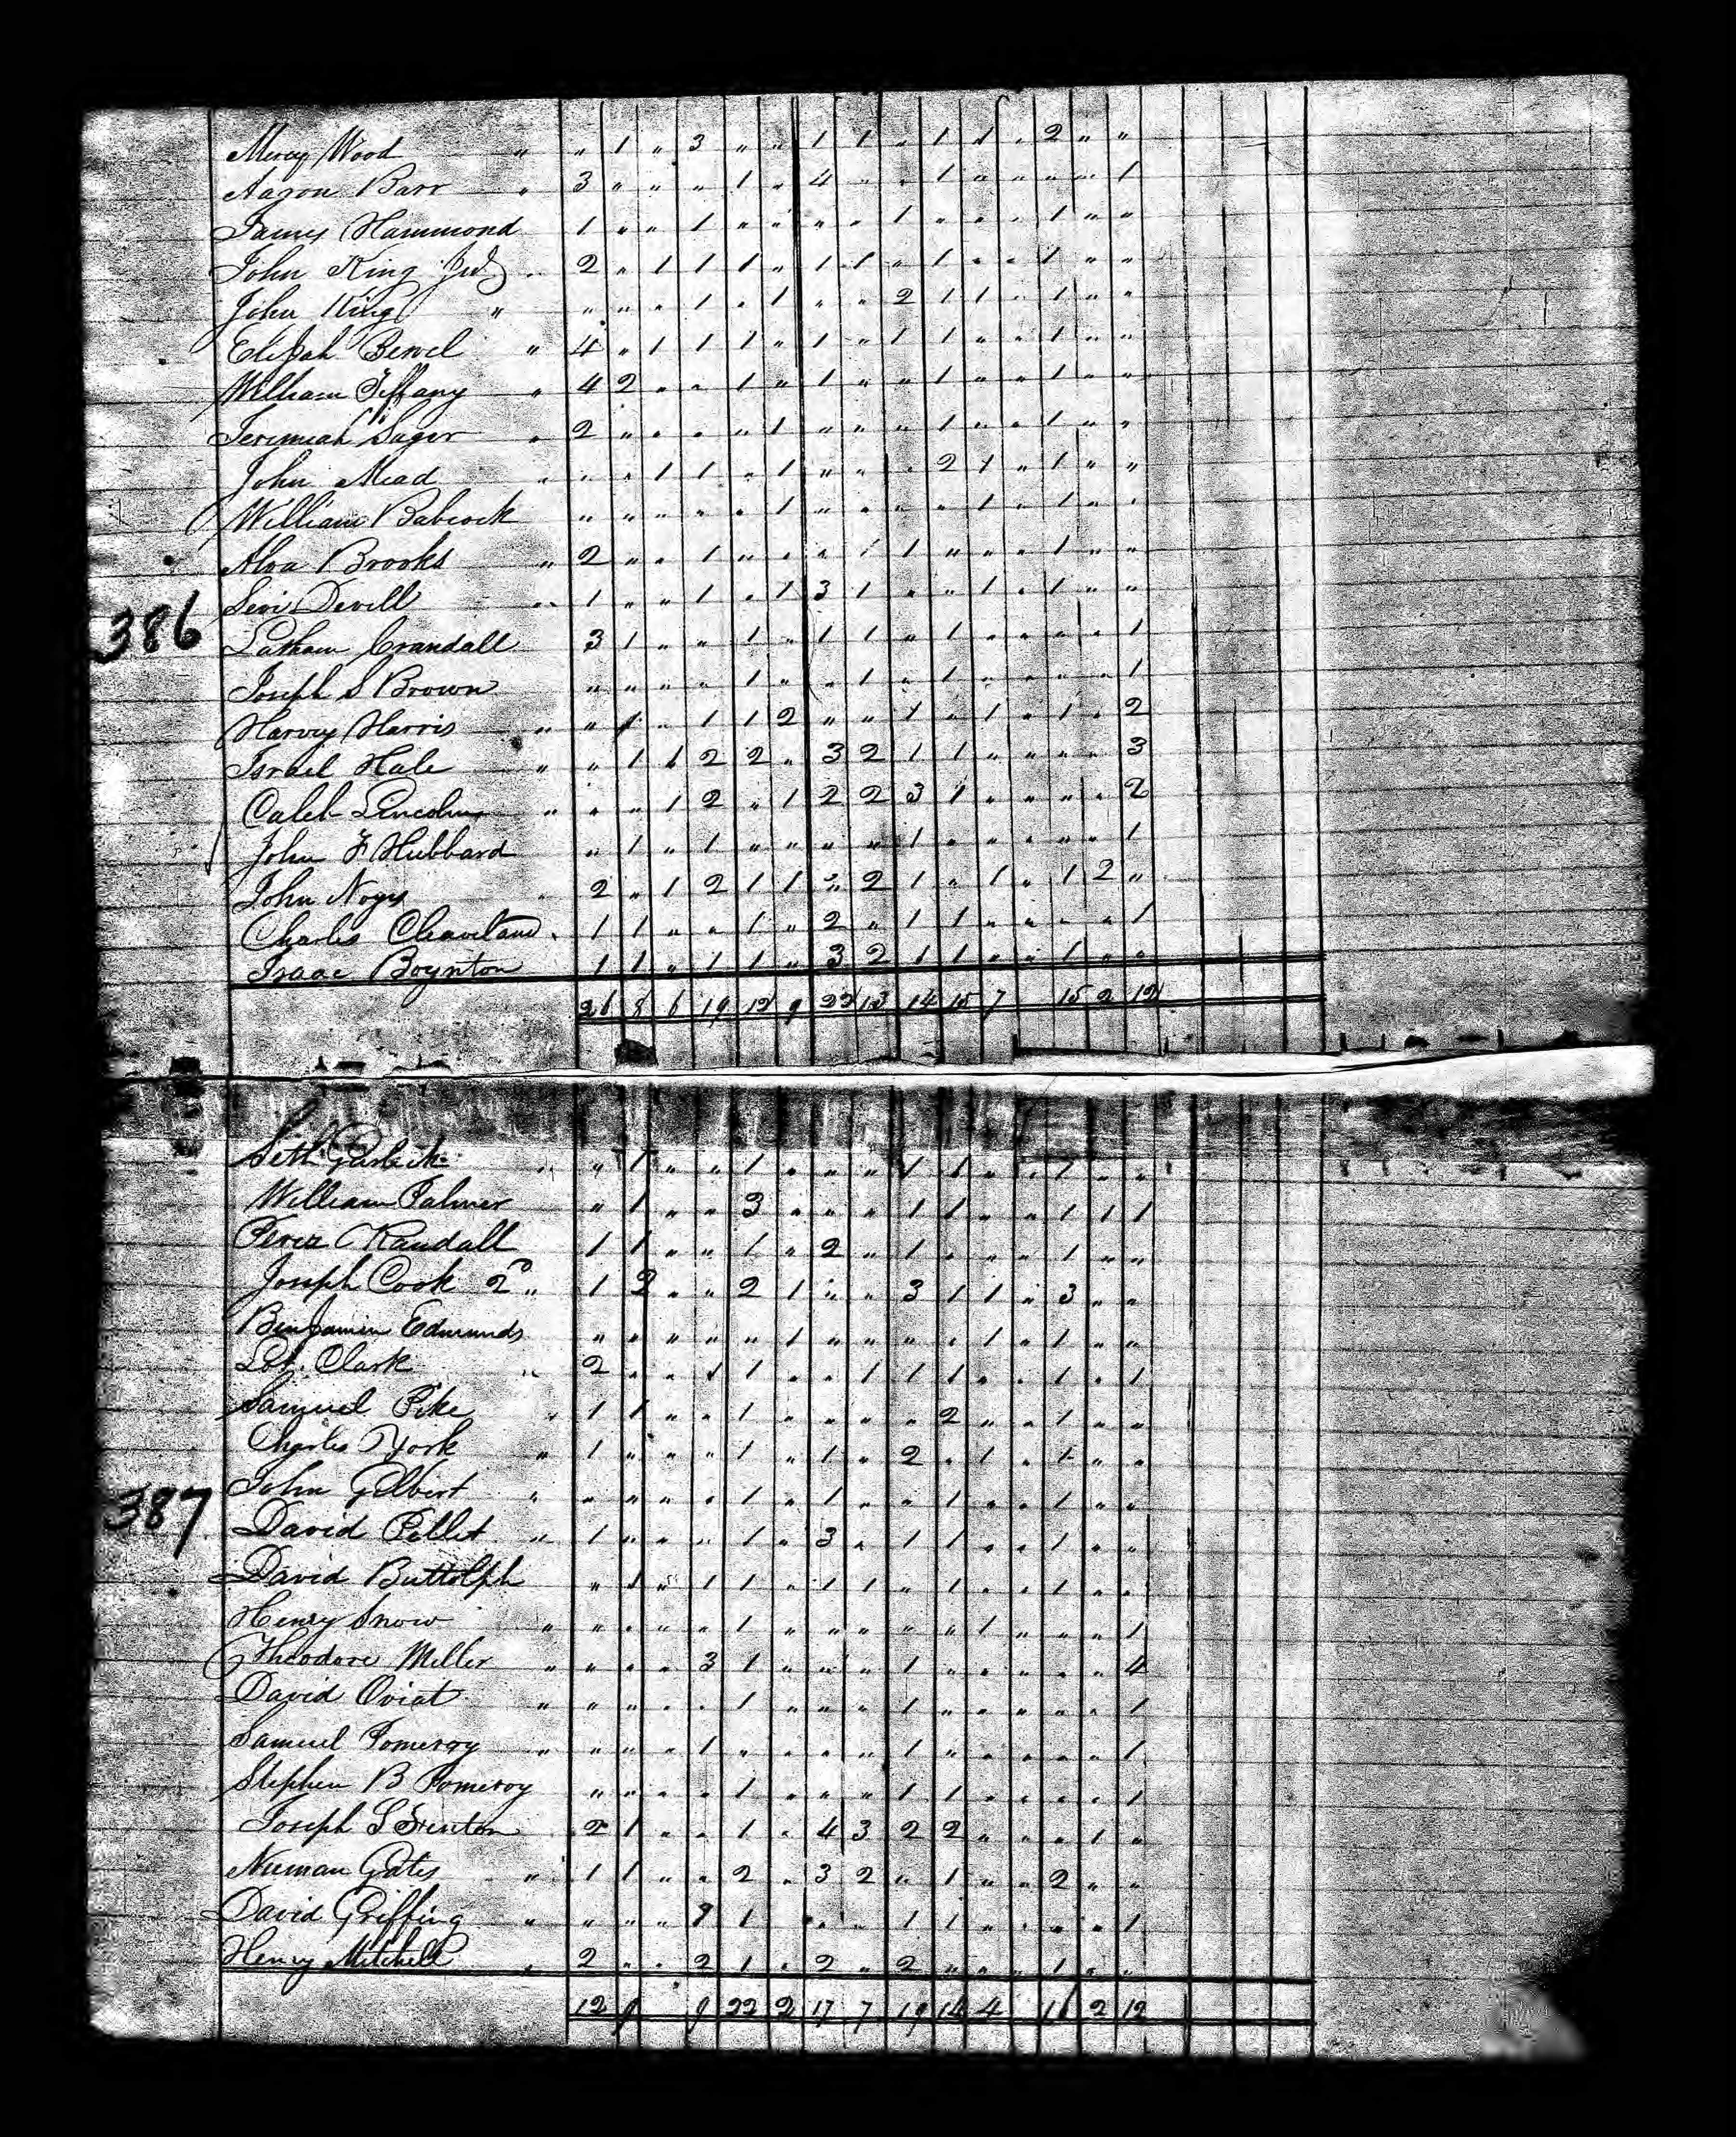 Mercy Wood " " 1 " 3 " " 1 1 " 1 1 " 2 " "
Aaron Barr " 3 " " " 1 " 4 " " 1 " " " " 1
James Hammond 1 " " 1 " " " " 1 " " " 1 " "
John King " 2 " 1 1 1 " 1 1 " 1 " " 1 " "
John King " " " " 1 " 1 " " 2 1 1 " 1 " "
Elijah " 4 " 1 1 1 " 1 " 1 1 " " 1 " "
William Tiffany " 4 2 " " 1 " 1 " " 1 " " 1 " "
Jerimiah Sager " 2 " " " " 1 " " " 1 " " 1 " "
John Mead " " " 1 1 " 1 " " " 2 1 " 1 " "
William Babcock " " " " " 1 " " " " 1 " 1 " "
Alva Brooks " 2 " " 1 " " " 1 1 " " " 1 " "
Levi Devill " 1 " " 1 " 1 3 1 " " 1 " 1 " "
386
Latham Crandall 3 1 " " 1 " 1 1 " 1 " " " " 1
Joseph S Brown " " " " 1 " " 1 " 1 " " " " 1
Harvey Harris " " 1 " 1 1 2 " " 1 " 1 " 1 " 2
Israel Hale " " 1 1 2 2 " 3 2 1 1 " " " " 3
Caleb Lincoln " " " 1 2 " 1 2 2 3 1 " " " " 2
John F Hubbard " 1 " 1 " " " " 1 " " " " " 1
John Noyes " 2 " 1 2 1 1 " 2 1 " 1 " 1 2 "
Charles Cleaveland " 1 1 " " 1 " 2 " 1 1 " " " " 1
Isaac Boynton 1 1 " 1 1 " 3 2 1 1 " " 1 " "
26 8 6 19 12 9 22 13 14 15 7 15 2 12
Seth " " 1 " " 1 " " " 1 1 " " 1 " "
William Palmer " 1 " " 3 " " " 1 1 " " 1 1 1
Perez Randall 1 1 " " 1 " 2 " 1 " " " 1 " "
Joseph Cook 2d " 1 2 " " 2 1 " " 3 1 1 " 3 " "
Benjamin Edmunds " " " " " 1 " " " " 1 " 1 " "
Lot Clark " 2 " " 1 1 " " 1 1 1 " " 1 " 1
Samuel Pike " 1 1 " " 1 " " " " 2 " " 1 " "
Charles York " 1 " " " 1 " 1 " 2 " 1 " 1 " "
John Gilbert " " " " " 1 " 1 " " 1 " " 1 " "
387
David Pellet " 1 " " " 1 " 3 " 1 1 " " 1 " "
David Buttolph " 1 " 1 1 " 1 1 " 1 " " 1 " "
Henry Snow " " " " " 1 " " " " " 1 " " " 1
Theodore Miller " " " " 3 1 " " " 1 " " " " " 4
David Oviat " " " " " 1 " " " 1 " " " " " 1
Samuel Pomeroy " " " " 1 " " " " 1 " " " " " 1
Stephen B Pomeroy " " " " 1 " " " 1 1 " " " " 1
Joseph S 2 1 " " 1 " 4 3 2 2 " " " 1 "
Nieman Gates " 1 1 " " 2 " 3 2 " 1 " " 2 " "
David Griffing " " " " 1 " " " 1 1 " " " " 1
Henry Mitchell " 2 " " 2 1 " 2 " 2 " " " 1 " "
12 9 9 22 2 17 7 19 14 4 16 2 12